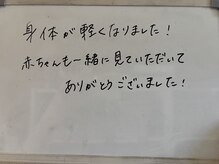 身体が軽くなりました!
赤ちゃんも一緒に見ていただいて
ありがとうございました!